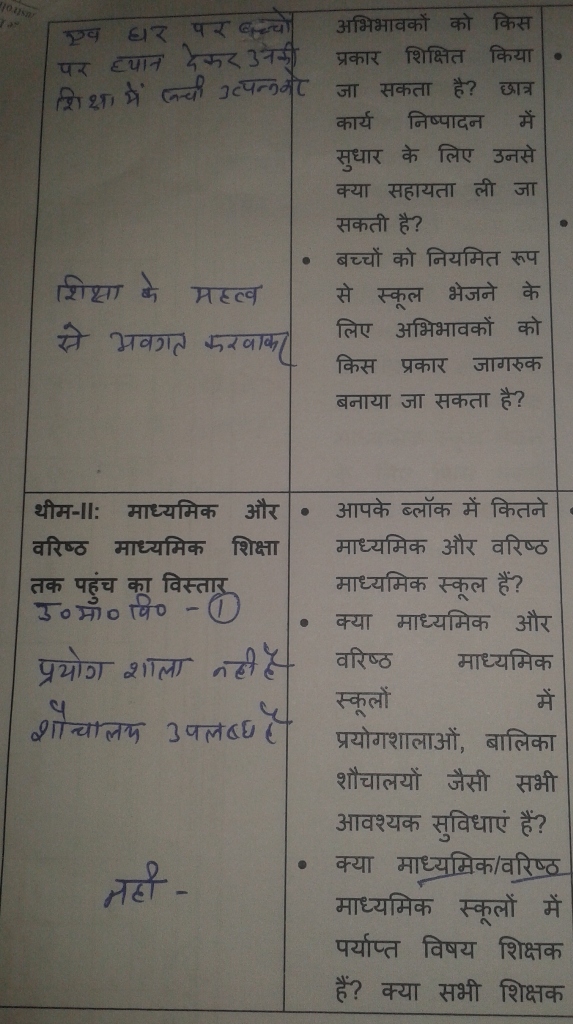 एवं घर पर बच्चो
पर ध्यान देकर उनकी
शिक्षा में रूची उत्पन्न
शिक्षा के महत्व
से अवगत करवाकर
अभिभावकों को किस
प्रकार शिक्षित किया
जा सकता है? छात्र
कार्य निष्पादन में
सुधार के लिए उनसे
क्या सहायता ली जा
सकती है?
• बच्चों को नियमित रूप
से स्कूल भेजने के
लिए अभिभावकों को
किस प्रकार जागरुक
बनाया जा सकता है?
थीम-II: माध्यमिक और
वरिष्ठ माध्यमिक शिक्षा
तक पहुंच का विस्तार
उ०मा० वि० - ①
प्रयोग शाला नही है
शौचालय उपलब्ध है
नही -
• आपके ब्लॉक में कितने
माध्यमिक और वरिष्ठ
माध्यमिक स्कूल हैं?
• क्या माध्यमिक और
वरिष्ठ माध्यमिक
स्कूलों में
प्रयोगशालाओं, बालिका
शौचालयों जैसी सभी
आवश्यक सुविधाएं हैं?
• क्या माध्यमिक/वरिष्ठ
माध्यमिक स्कूलों में
पर्याप्त विषय शिक्षक
हैं? क्या सभी शिक्षक